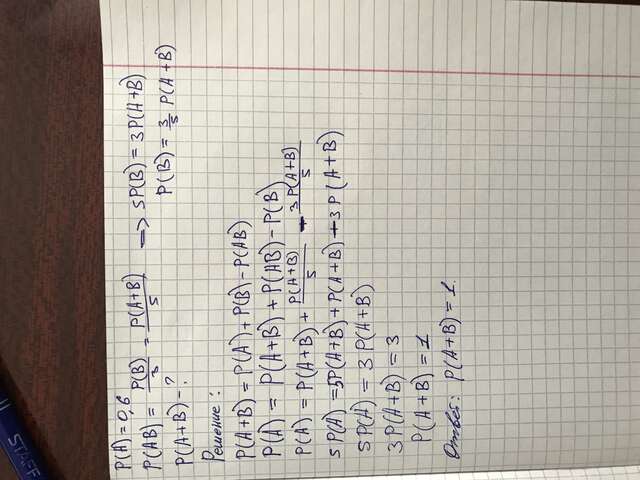 STAEF
P(A) = 0,6
P(AB) = P(B)/3 = P(A+B)/5 → 5P(B) = 3P(A+B)
P(B) = 3/5 P(A+B)
P(A+B) - ?
Решение:
P(A+B) = P(A) + P(B) - P(AB)
P(A) = P(A+B) + P(AB) - P(B)
P(A) = P(A+B) + P(A+B)/5 - 3P(A+B)/5
5P(A) = 5P(A+B) + P(A+B) - 3P(A+B)
5P(A) = 3P(A+B)
3P(A+B) = 3
P(A+B) = 1
Ответ: P(A+B) = 1.